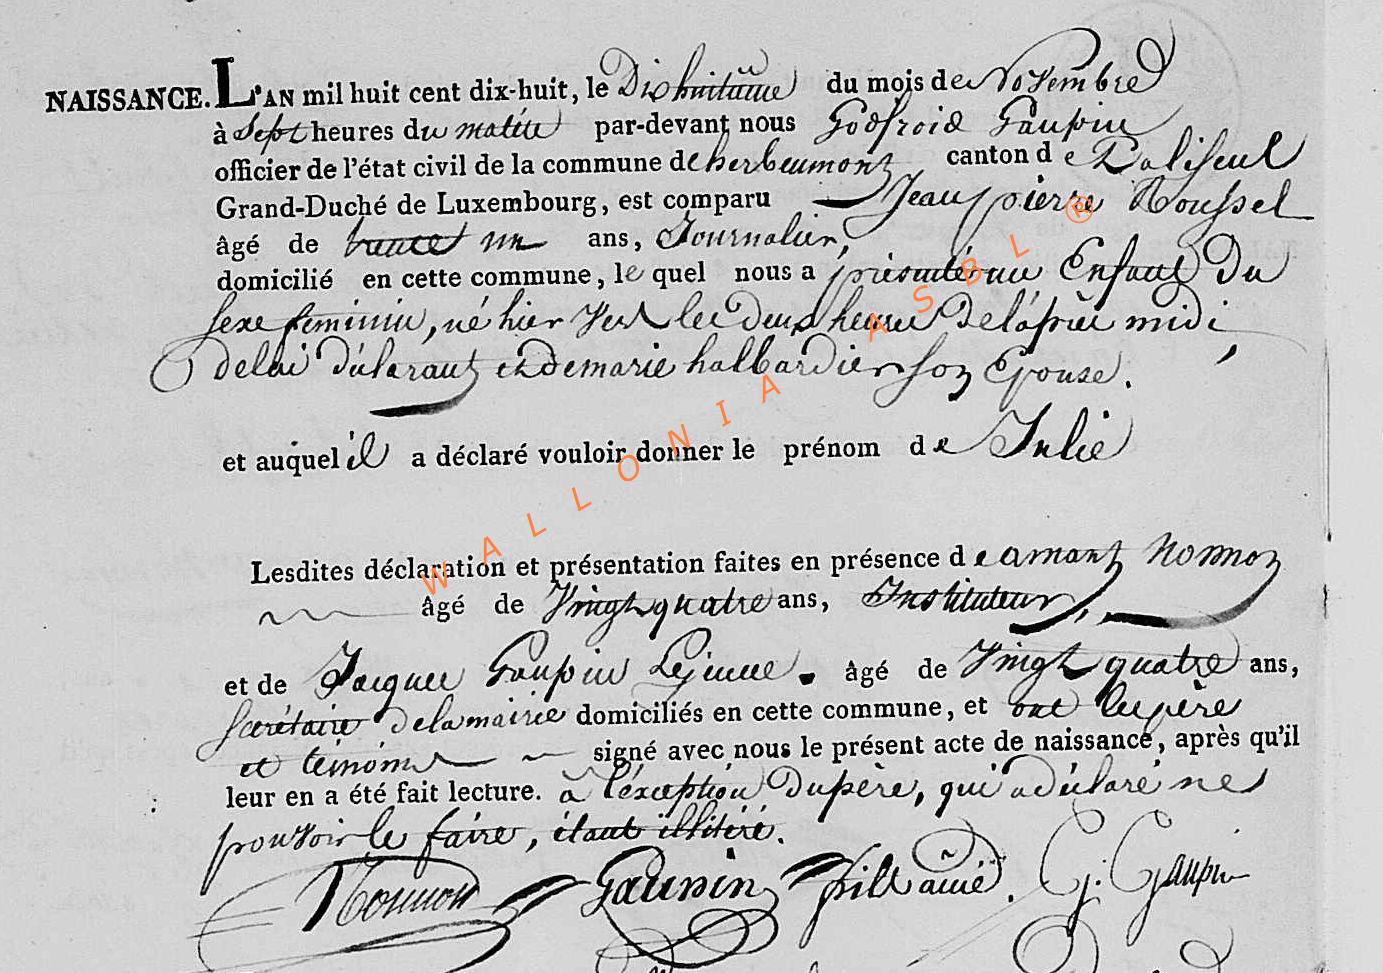 NAISSANCE. L'AN mil huit cent dix-huit, le Dixhuitieme du mois de Novembre
à Sept heures du matin par-devant nous Godfroid Gaupin
officier de l'état civil de la commune de herbeumont canton de Paliseul
Grand-Duché de Luxembourg, est comparu Jean pierre Roussel
âgé de trente un ans, Journalier,
domicilié en cette commune, le quel nous a présenté un Enfant Du
sexe feminin, né hier vers les deux heures De l'après midi,
de lui déclarant et de marie halbardier son Epouse.
et auquel il a déclaré vouloir donner le prénom de Julie
Lesdites déclaration et présentation faites en présence de amant Nonnon
âgé de Vingt quatre ans, Instituteur,
et de Jacques Gaupin Lejeune. âgé de Vingt quatre ans,
secrétaire de la mairie domiciliés en cette commune, et ont les père
et témoins signé avec nous le présent acte de naissance, après qu'il
leur en a été fait lecture. à l'éxception Du père, qui a déclaré ne
pouvoir le faire, étant illitéré.
Nonnon Gaupin G. Gaupin
WALLONIA ASBL ®